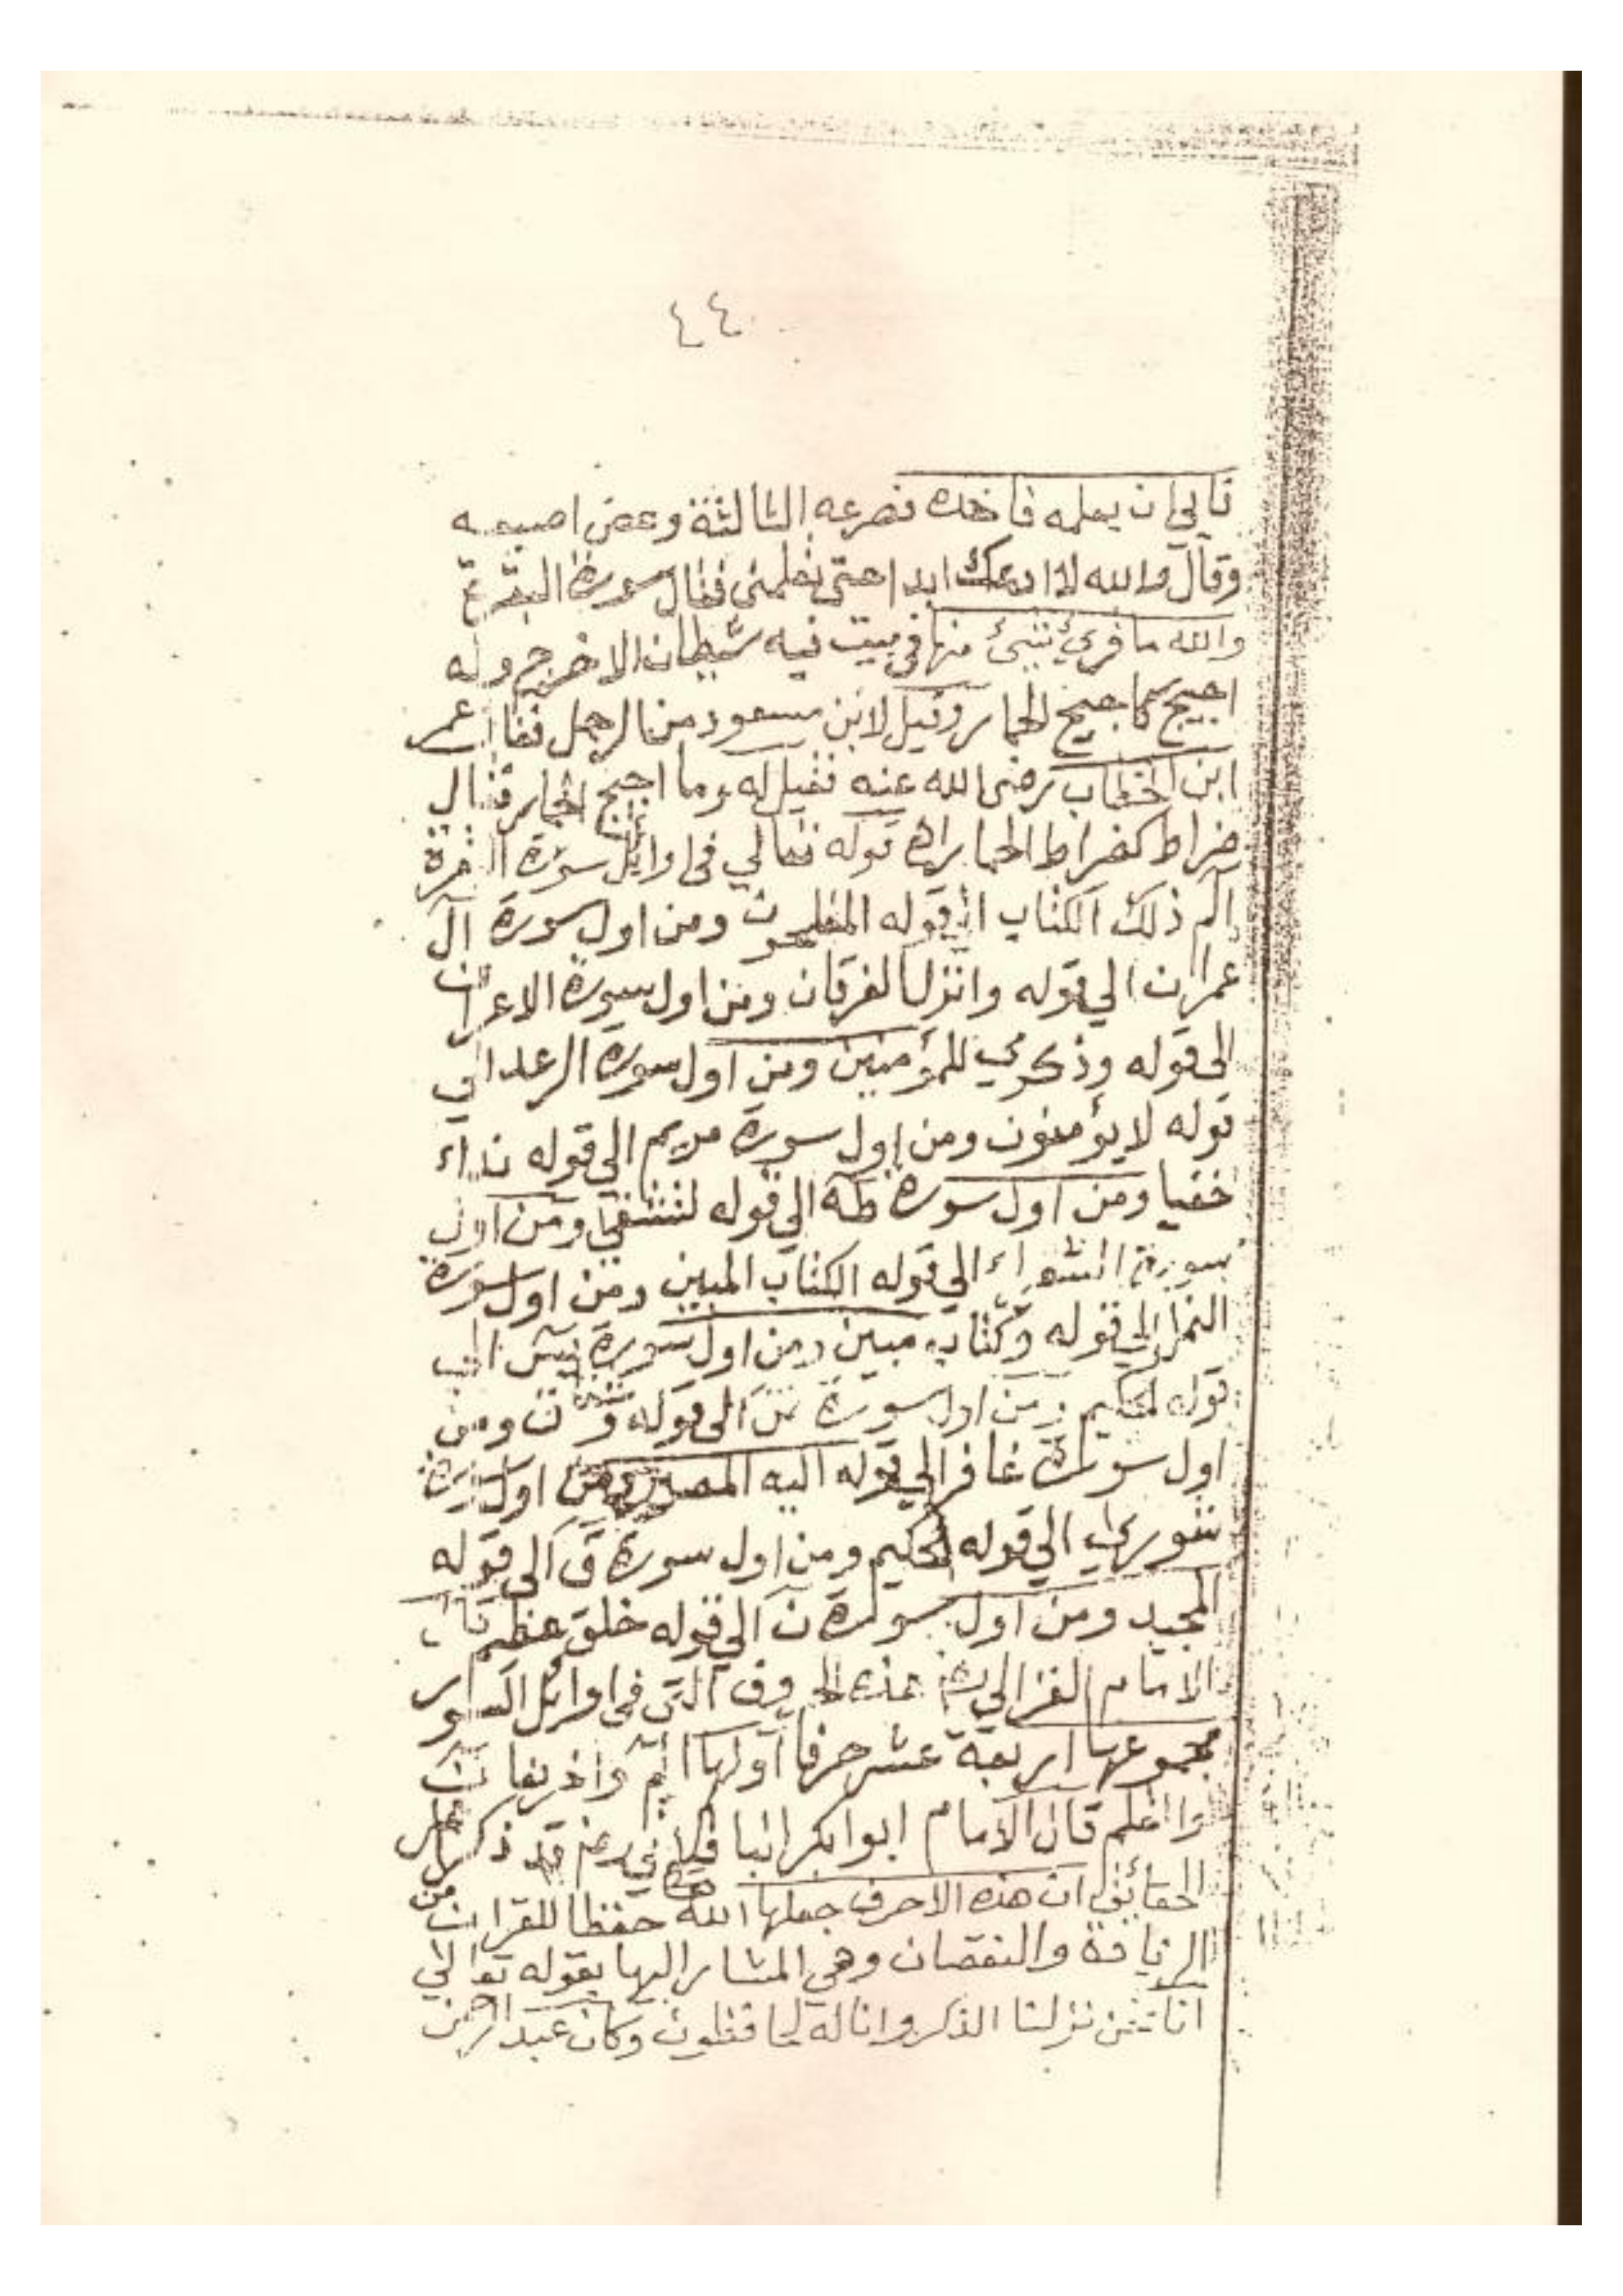 ٤٤
فابي ان يعلمه فاخذه فصرعه الثالثة وعض اصبعه
وقال والله لا ادعك ابدا حتى تعلمني فقال سورة البقرة
والله ما قرئ شئ منها في بيت فيه شيطان الا خرج وله
اجيج كما جيج الحمار وقيل لابن مسعود من الرجل فقال عمر
ابن الخطاب رضى الله عنه فقيل له وما اجيج الحمار فقال
ضراط كضراط الحمار قوله تعالي في اوايل سورة البقرة
الم ذلك الكتاب الي قوله المفلحون ومن اول سورة آل
عمران الي قوله وانزل الفرقان ومن اول سورة الاعراف
الى قوله وذكري للمؤمنين ومن اول سورة الرعد الي
قوله لا يؤمنون ومن اول سورة مريم الي قوله نداء
خفيا ومن اول سورة طه الي قوله لتشقي ومن اول
سورة الشعراء الي قوله الكتاب المبين ومن اول سورة
النمل الي قوله وكتاب مبين ومن اول سورة يس الي
قوله الحكيم ومن اول سورة الى قوله ومن
اول سورة غافر الي قوله اليه المصير ومن اول سورة
شوري الي قوله الحكيم ومن اول سورة ق الى قوله
المجيد ومن اول سورة ن الي قوله خلق عظيم قال
الامام الغزالي هذه الحروف التي في اوايل السور
مجموعها اربعة عشر حرفا اولها الم واخرها ن
واعلم قال الامام ابوا بكر الباقلاني قد ذكر
الحقائق ان هذه الاحرف جعلها الله حفظا للقران من
الزيادة والنقصان وهي المشار اليها بقوله تعالي
انا نحن نزلنا الذكر وانا له لحافظون وكان عبد الرحمن